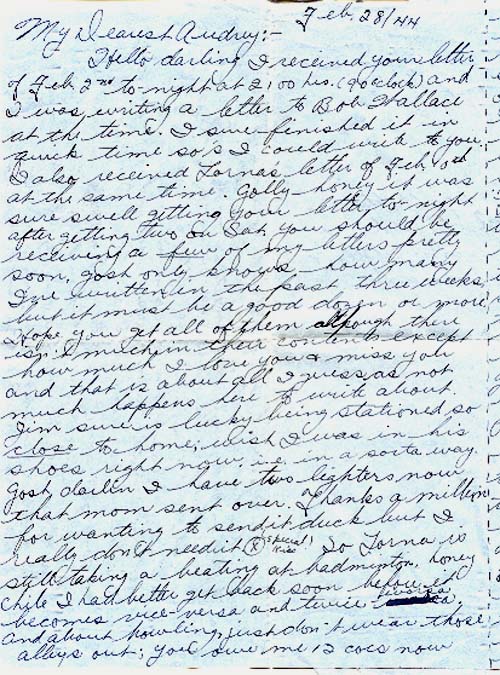 Feb, 28/44
My Dearest Audrey:-
Hello darling I received your letter
of Feb. 2nd to-night at 21,00 hrs. (9 o'clock) and
I was writing a letter to Bob Wallace
at the time. I sure finished it in
quick time so's I could write to you
I also received Lorna's letter of Feb 3rd
at the same time. Golly honey it was
sure swell getting your letter to-night
after getting two on Sat. You should be
receiving a few of my letters pretty
soon, gosh only knows how many
I've written in the past three weeks,
but it must be a good dozen or more
Hope you get all of them although there
isn't much in their contents except
how much I love you & miss you
and that is about all I guess, as not
much happens here to write about.
Jim sure is lucky being stationed so
close to home; wish I was in his
shoes right now, i.e. in a sorta way.
Gosh, darlin I have two lighters now
that mom sent over. Thanks a million
for wanting to send it duck but I
really don't need it (x) special! kiss So Lorna is
still taking a beating at badminton, honey
chile I had better get back soon before it
becomes vice-versa and twice
and about bowling, just don't wear those
alleys out; you owe me 12 cocs now